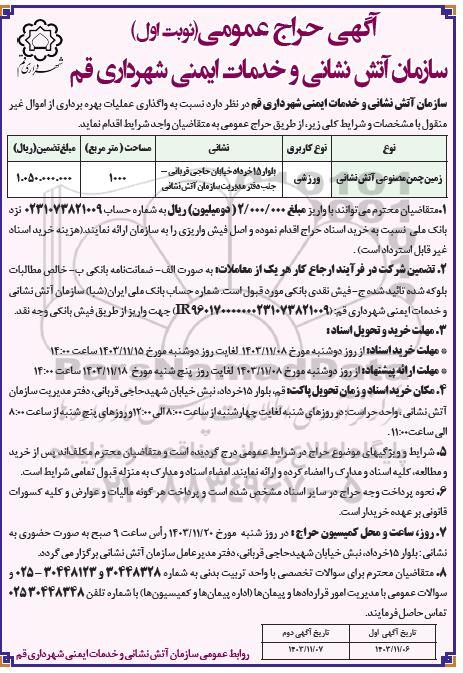 آگهی حراج عمومی (نوبت اول)
سازمان آتش نشانی و خدمات ایمنی شهرداری قم
شهرداری قم
سازمان آتش نشانی و خدمات ایمنی شهرداری قم در نظر دارد نسبت به واگذاری عملیات بهره برداری از اموال غیر
منقول با مشخصات و شرایط کلی زیر، از طریق حراج عمومی به متقاضیان واجد شرایط اقدام نماید.
نوع نوع کاربری نشانی مساحت (متر مربع) مبلغ تضمین (ریال)
زمین چمن مصنوعی آتش نشانی ورزشی بلوار ۱۵ خرداد خیابان حاجی قربانی – ۱۰۰۰ ۱.۰۵۰.۰۰۰.۰۰۰
جنب دفتر مدیریت سازمان آتش نشانی
۱. متقاضیان محترم می توانند با واریز مبلغ ۲/۰۰۰/۰۰۰ (دو میلیون) ریال به شماره حساب ۰۲۳۱۰۷۳۸۲۱۰۰۹ نزد
بانک ملی نسبت به خرید اسناد حراج اقدام نموده و اصل فیش واریزی را به سازمان ارائه نمایند. (هزینه خرید اسناد
غیر قابل استرداد است).
۲. تضمین شرکت در فرآیند ارجاع کار هر یک از معاملات: به صورت الف- ضمانت نامه بانکی ب- خالص مطالبات
بلوکه شده تائید شده ج- فیش نقدی بانکی مورد قبول است. شماره حساب بانک ملی ایران (شبا) سازمان آتش نشانی
و خدمات ایمنی شهرداری قم: (IR۹۶۰۱۷۰۰۰۰۰۰۰۲۳۱۰۷۳۸۲۱۰۰۹) جهت واریز از طریق فیش بانکی وجه نقد.
۳. مهلت خرید و تحویل اسناد:
* مهلت خرید اسناد: از روز دوشنبه مورخ ۱۴۰۳/۱۱/۰۸ لغایت روز دوشنبه مورخ ۱۴۰۳/۱۱/۱۵ ساعت ۱۴:۰۰
* مهلت ارائه پیشنهاد: از روز دوشنبه مورخ ۱۴۰۳/۱۱/۰۸ لغایت روز پنج شنبه مورخ ۱۴۰۳/۱۱/۱۸ ساعت ۱۴:۰۰
۴. مکان خرید اسناد و زمان تحویل پاکت: قم، بلوار ۱۵ خرداد، نبش خیابان شهید حاجی قربانی، دفتر مدیریت سازمان
آتش نشانی. واحد حراست؛ در روزهای شنبه لغایت چهارشنبه از ساعت ۸:۰۰ الی ۱۲:۰۰ و روزهای پنج شنبه از ساعت ۸:۰۰
الی ساعت ۱۱:۰۰.
۵. شرایط و ویژگیهای موضوع حراج در شرایط عمومی درج گردیده است و متقاضیان محترم مکلف اند پس از خرید
و مطالعه، کلیه اسناد و مدارک را امضاء کرده و ارائه نمایند. امضاء اسناد و مدارک به منزله قبول تمامی شرایط است.
۶. نحوه پرداخت وجه حراج در سایر اسناد مشخص شده است و پرداخت هر گونه مالیات و عوارض و کلیه کسورات
قانونی بر عهده خریدار است.
۷. روز، ساعت و محل کمیسیون حراج: در روز شنبه مورخ ۱۴۰۳/۱۱/۲۰ رأس ساعت ۹ صبح به صورت حضوری به
نشانی: بلوار ۱۵ خرداد، نبش خیابان شهید حاجی قربانی، دفتر مدیر عامل سازمان آتش نشانی برگزار می گردد.
۸. متقاضیان محترم برای سوالات تخصصی با واحد تربیت بدنی به شماره ۳۰۴۴۸۳۲۸ و ۳۰۴۴۸۱۲۳ – ۰۲۵ و
سوالات عمومی با مدیریت امور قراردادها و پیمان ها (اداره پیمان ها و کمیسیون ها) با شماره تلفن ۳۰۴۴۸۳۴۸ ۰۲۵
تماس حاصل فرمایند.
تاریخ آگهی اول تاریخ آگهی دوم
۱۴۰۳/۱۱/۰۶ ۱۴۰۳/۱۱/۰۷
روابط عمومی سازمان آتش نشانی و خدمات ایمنی شهرداری قم